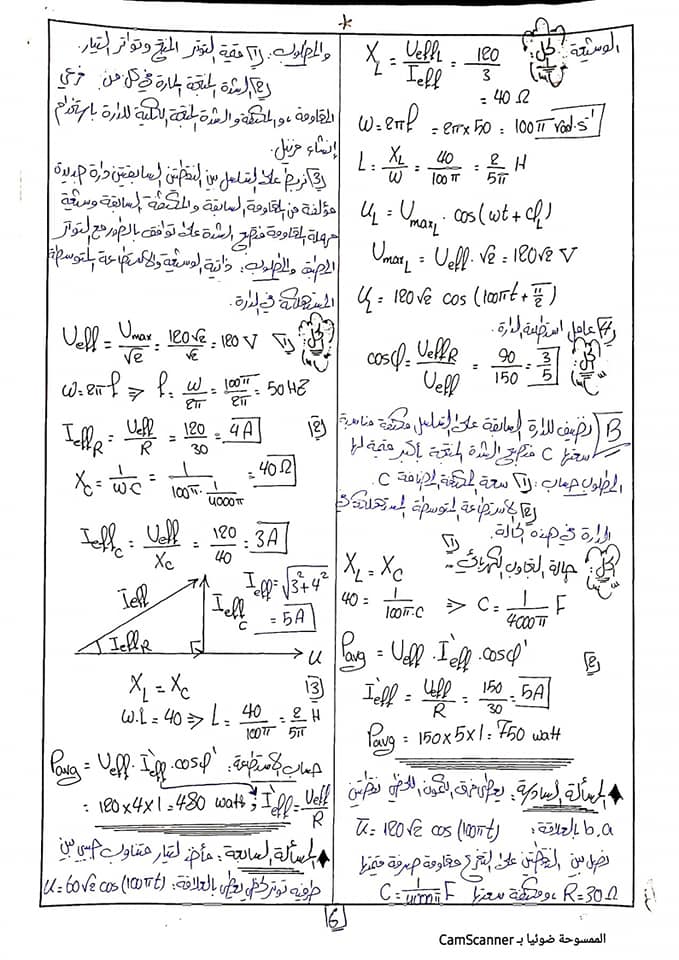 الوسيعة
حل:
X_L = UeffL / Ieff = 120 / 3
= 40 Ω
ω = 2πf = 2π × 50 = 100π rad.s⁻¹
L = X_L / ω = 40 / 100π = 2 / 5π H
u_L = Umax_L . cos(ωt + φ_L)
Umax_L = Ueff . √2 = 120√2 V
u_L = 120√2 cos(100πt + π/2)
4) عامل استطاعة الدارة.
حل:
cosφ = UeffR / Ueff = 90 / 150 = 3 / 5
B) نضيف للدارة السابقة على التسلسل مكثفة مناسبة
سعتها C فتصبح الشدة المنتجة بأكبر قيمة لها
المطلوب حساب: 1) سعة المكثفة المضافة C.
2) الاستطاعة المتوسطة المستهلكة في
الدارة في هذه الحالة.
حل: حالة التجاوب الكهربائي 1)
X_L = X_C
40 = 1 / 100π.C ⇒ C = 1 / 4000π F
Pavg = Ueff . I'eff . cosφ' 2)
I'eff = Ueff / R = 150 / 30 = 5A
Pavg = 150 × 5 × 1 = 750 watt
♦ المسألة السادسة: يعطى فرق الكمون اللحظي بين نقطتين
a, b بالعلاقة:
u = 120√2 cos(100πt)
نصل بين النقطتين على التفرع مقاومة صرفة قيمتها
R = 30 Ω، ومكثفة سعتها C = 1 / 4000π F
والمطلوب: 1) قيمة التوتر المنتج وتواتر التيار.
2) الشدة المنتجة المارة في كل من فرعي
المقاومة، والمكثفة والشدة المنتجة الكلية للدارة باستخدام
إنشاء فرينل.
3) نربط على التسلسل بين النقطتين السابقتين دارة جديدة
مؤلفة من المقاومة السابقة والمكثفة السابقة ووسيعة
مهملة المقاومة فتصبح الشدة على توافق بالطور مع التوتر
المطبق والمطلوب: ذاتية الوسيعة والاستطاعة المتوسطة
المستهلكة في الدارة.
حل: 1) Ueff = Umax / √2 = 120√2 / √2 = 120 V
ω = 2πf ⇒ f = ω / 2π = 100π / 2π = 50 HZ
2) IeffR = Ueff / R = 120 / 30 = 4A
X_C = 1 / ωC = 1 / 100π . 1/4000π = 40 Ω
IeffC = Ueff / X_C = 120 / 40 = 3A
Ieff = √3² + 4²
= 5A
Ieff
IeffC
IeffR
u
X_L = X_C 3)
ω.L = 40 ⇒ L = 40 / 100π = 2 / 5π H
حساب الاستطاعة: Pavg = Ueff . I'eff . cosφ'
= 120 × 4 × 1 = 480 watt ; I'eff = Ueff / R
♦ المسألة السابعة: مأخذ لتيار متناوب جيبي بين
طرفيه توتر لحظي يعطى بالعلاقة: u = 60√2 cos(100πt)
6
الممسوحة ضوئيا بـ CamScanner